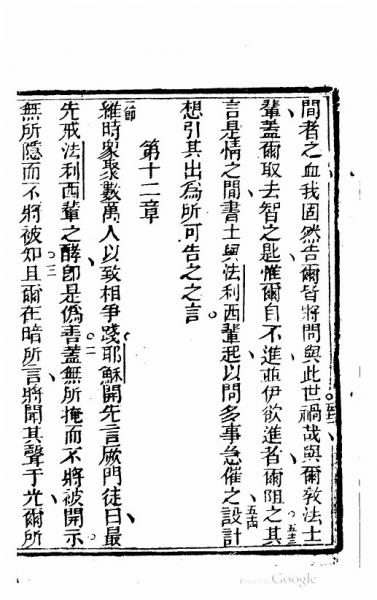 間者之血我固然告爾皆將問與此世禍哉與爾敎法士
輩蓋爾取去智之匙惟爾自不進並伊欲進者爾阻之其
言是情之間書士與法利西輩起以問多事急催之設計
想引其出為所可告之之言
第十二章
一節
維時眾聚數萬人以致相爭踐耶穌開先言厥門徒曰最
先戒法利西輩之酵卽是僞善蓋無所掩而不將被開示
無所隱而不將被知且爾在暗所言將聞其聲于光爾所
Google